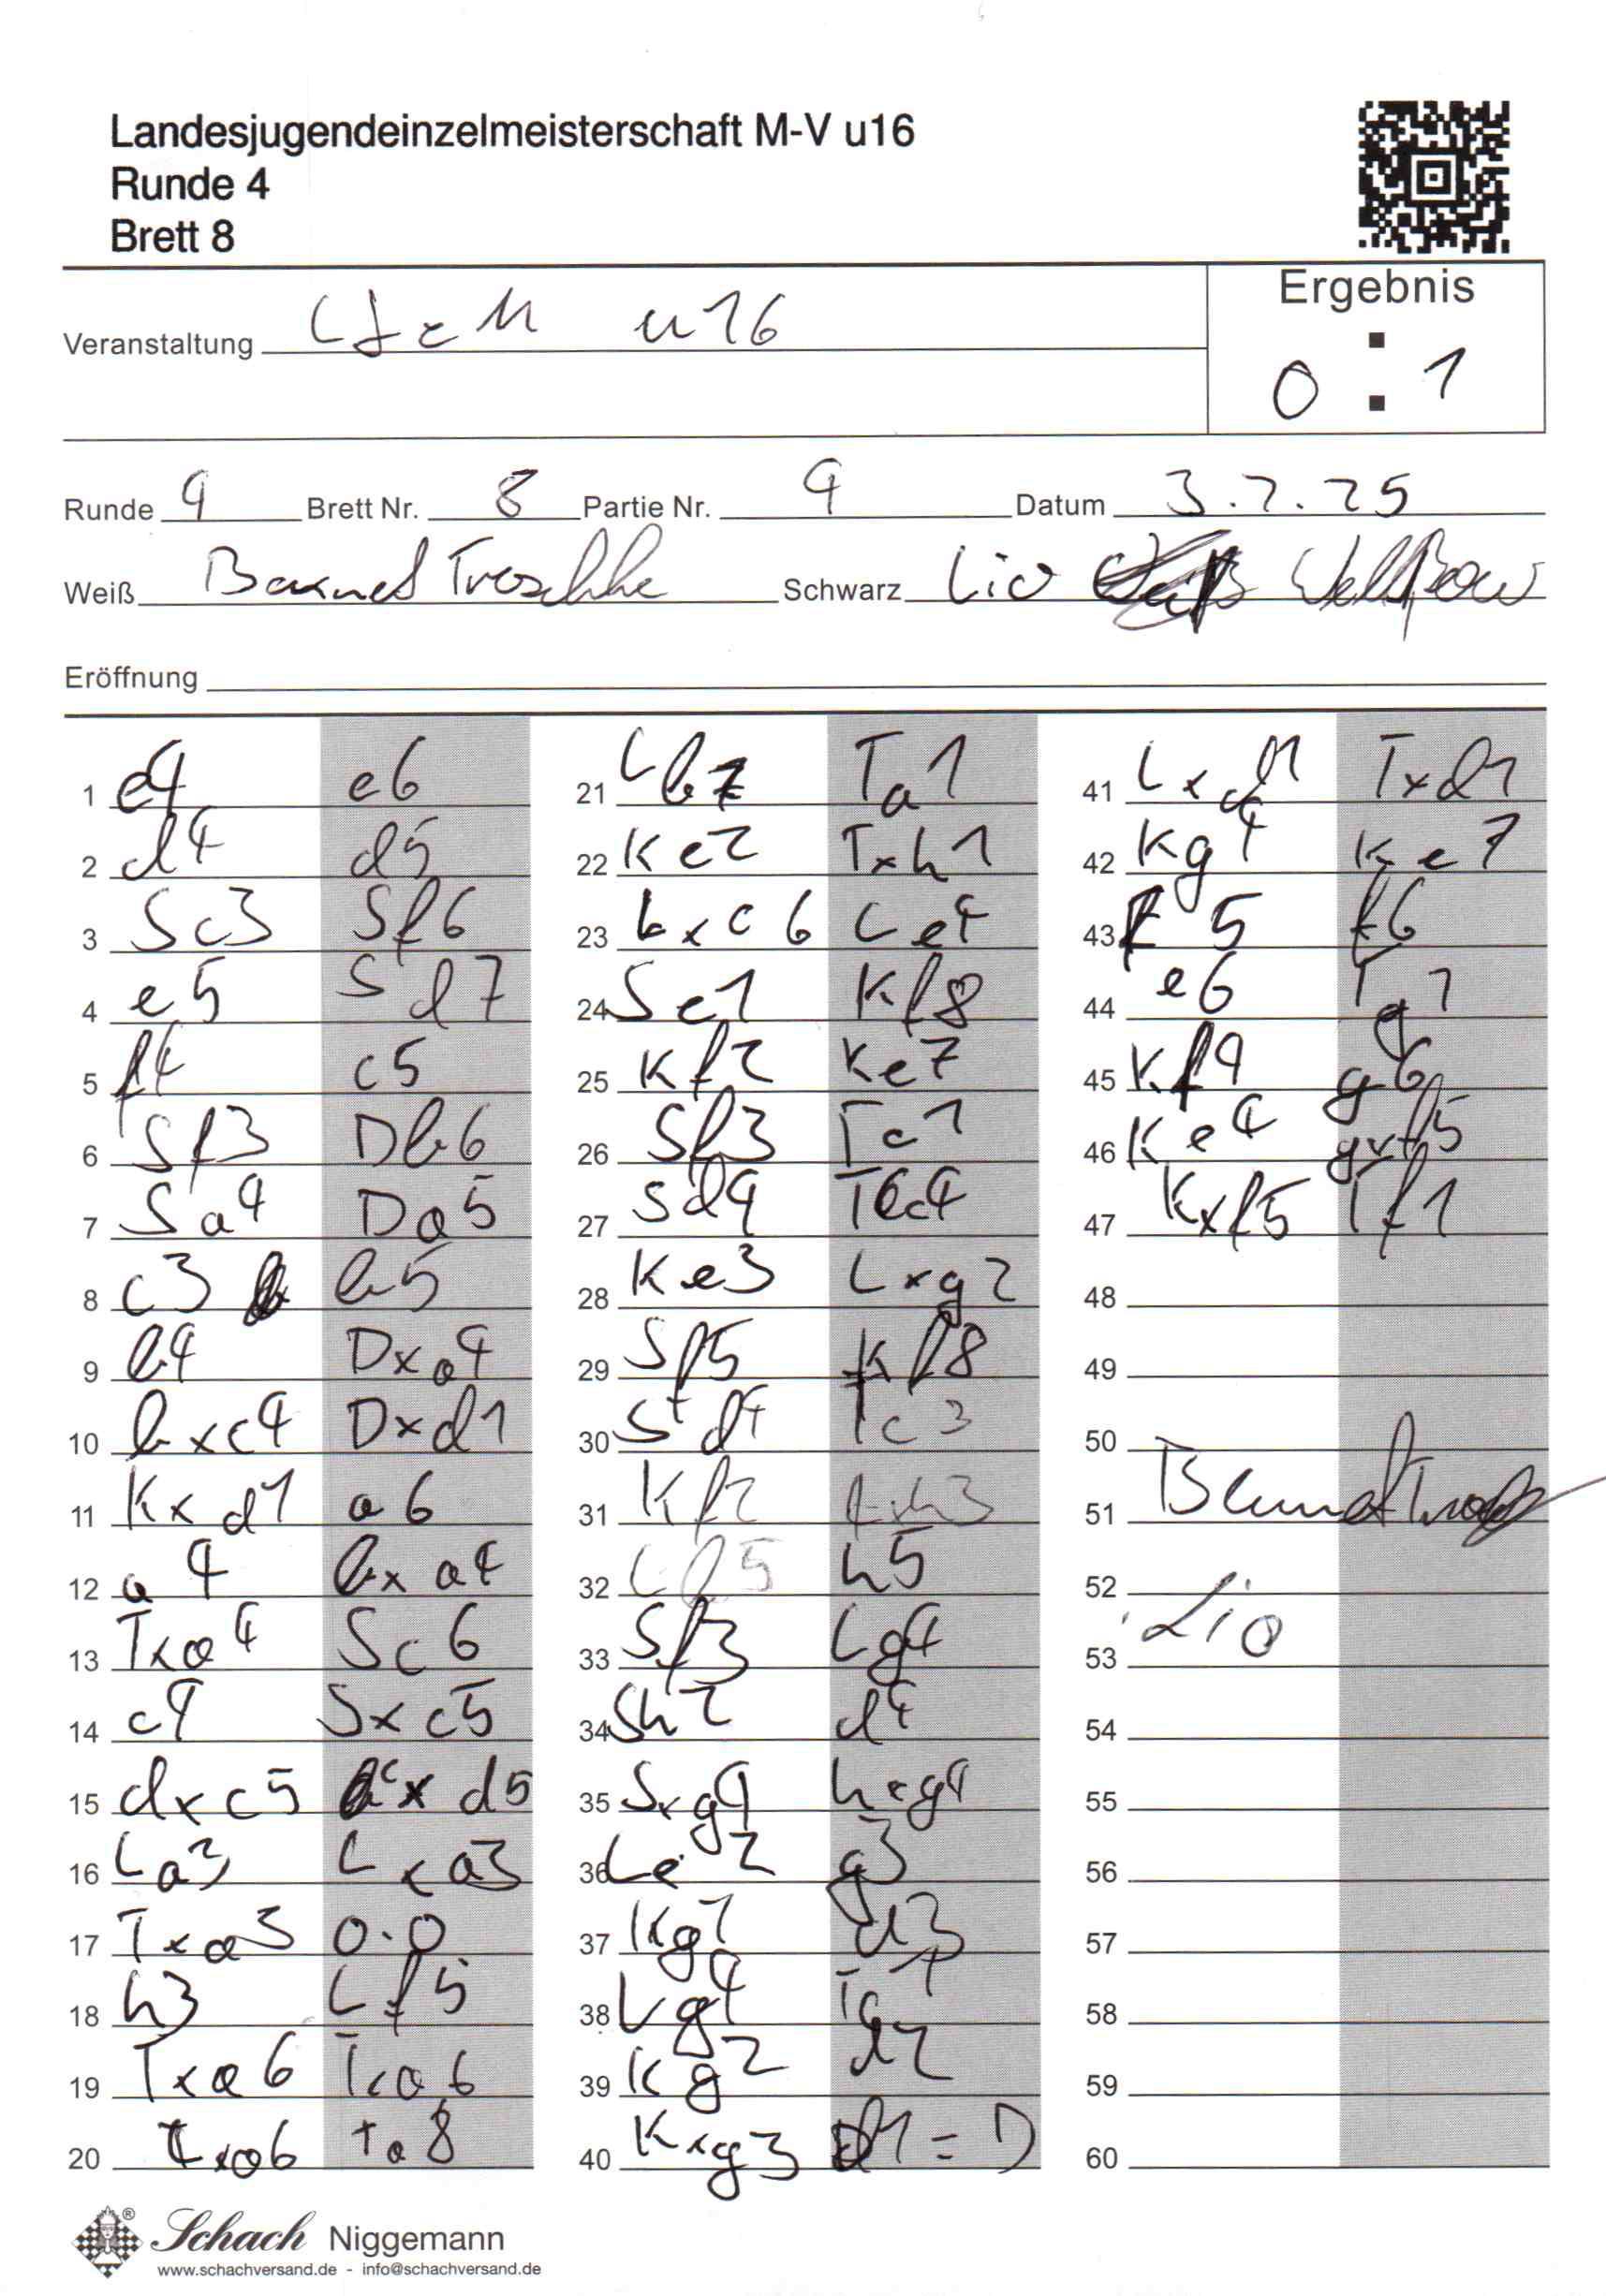 Landesjugendeinzelmeisterschaft M-V u16
Runde 4
Brett 8
Ergebnis
Veranstaltung LJEM u16
0 : 1
Runde 4 Brett Nr. 8 Partie Nr. 4 Datum 3.2.25
Weiß Schwarz Lio
Eröffnung
1 e4 e6
2 d4 d5
3 Sc3 Sf6
4 e5 Sd7
5 f4 c5
6 Sf3 Db6
7 Sa4 Da5
8 c3 b5
9 b4 Dxa4
10 bxc4 Dxd1
11 Kxd1 a6
12 a4 bxa4
13 Txa4 Sc6
14 c4 Sxc5
15 dxc5 cxd5
16 La3 Lxa3
17 Txa3 0-0
18 h3 Lf5
19 Txa6 Txa6
20 Lxa6 Ta8
21 Lb7 Ta1
22 Ke2 Txh1
23 Lxc6 Le4
24 Se1 Kf8
25 Kf2 Ke7
26 Sf3 Tc1
27 Sd4 Tc4
28 Ke3 Lxg2
29 Sf5 Kf8
30 Sd4 Tc3
31 Kf2 Lxh3
32 Lb5 h5
33 Sf3 Lg4
34 Sh2 d4
35 Sxg4 hxg4
36 Le2 g3
37 Kg1 d3
38 Lg4 Tc1
39 Kg2 d2
40 Kxg3 d1=D
41 Lxd1 Txd1
42 Kg4 Ke7
43 f5 f6
44 e6 Tg1
45 Kf4 g6
46 Ke4 gxf5
47 Kxf5 Tf1
48
49
50
51
52
Lio
53
54
55
56
57
58
59
60
Schach Niggemann
www.schachversand.de - info@schachversand.de